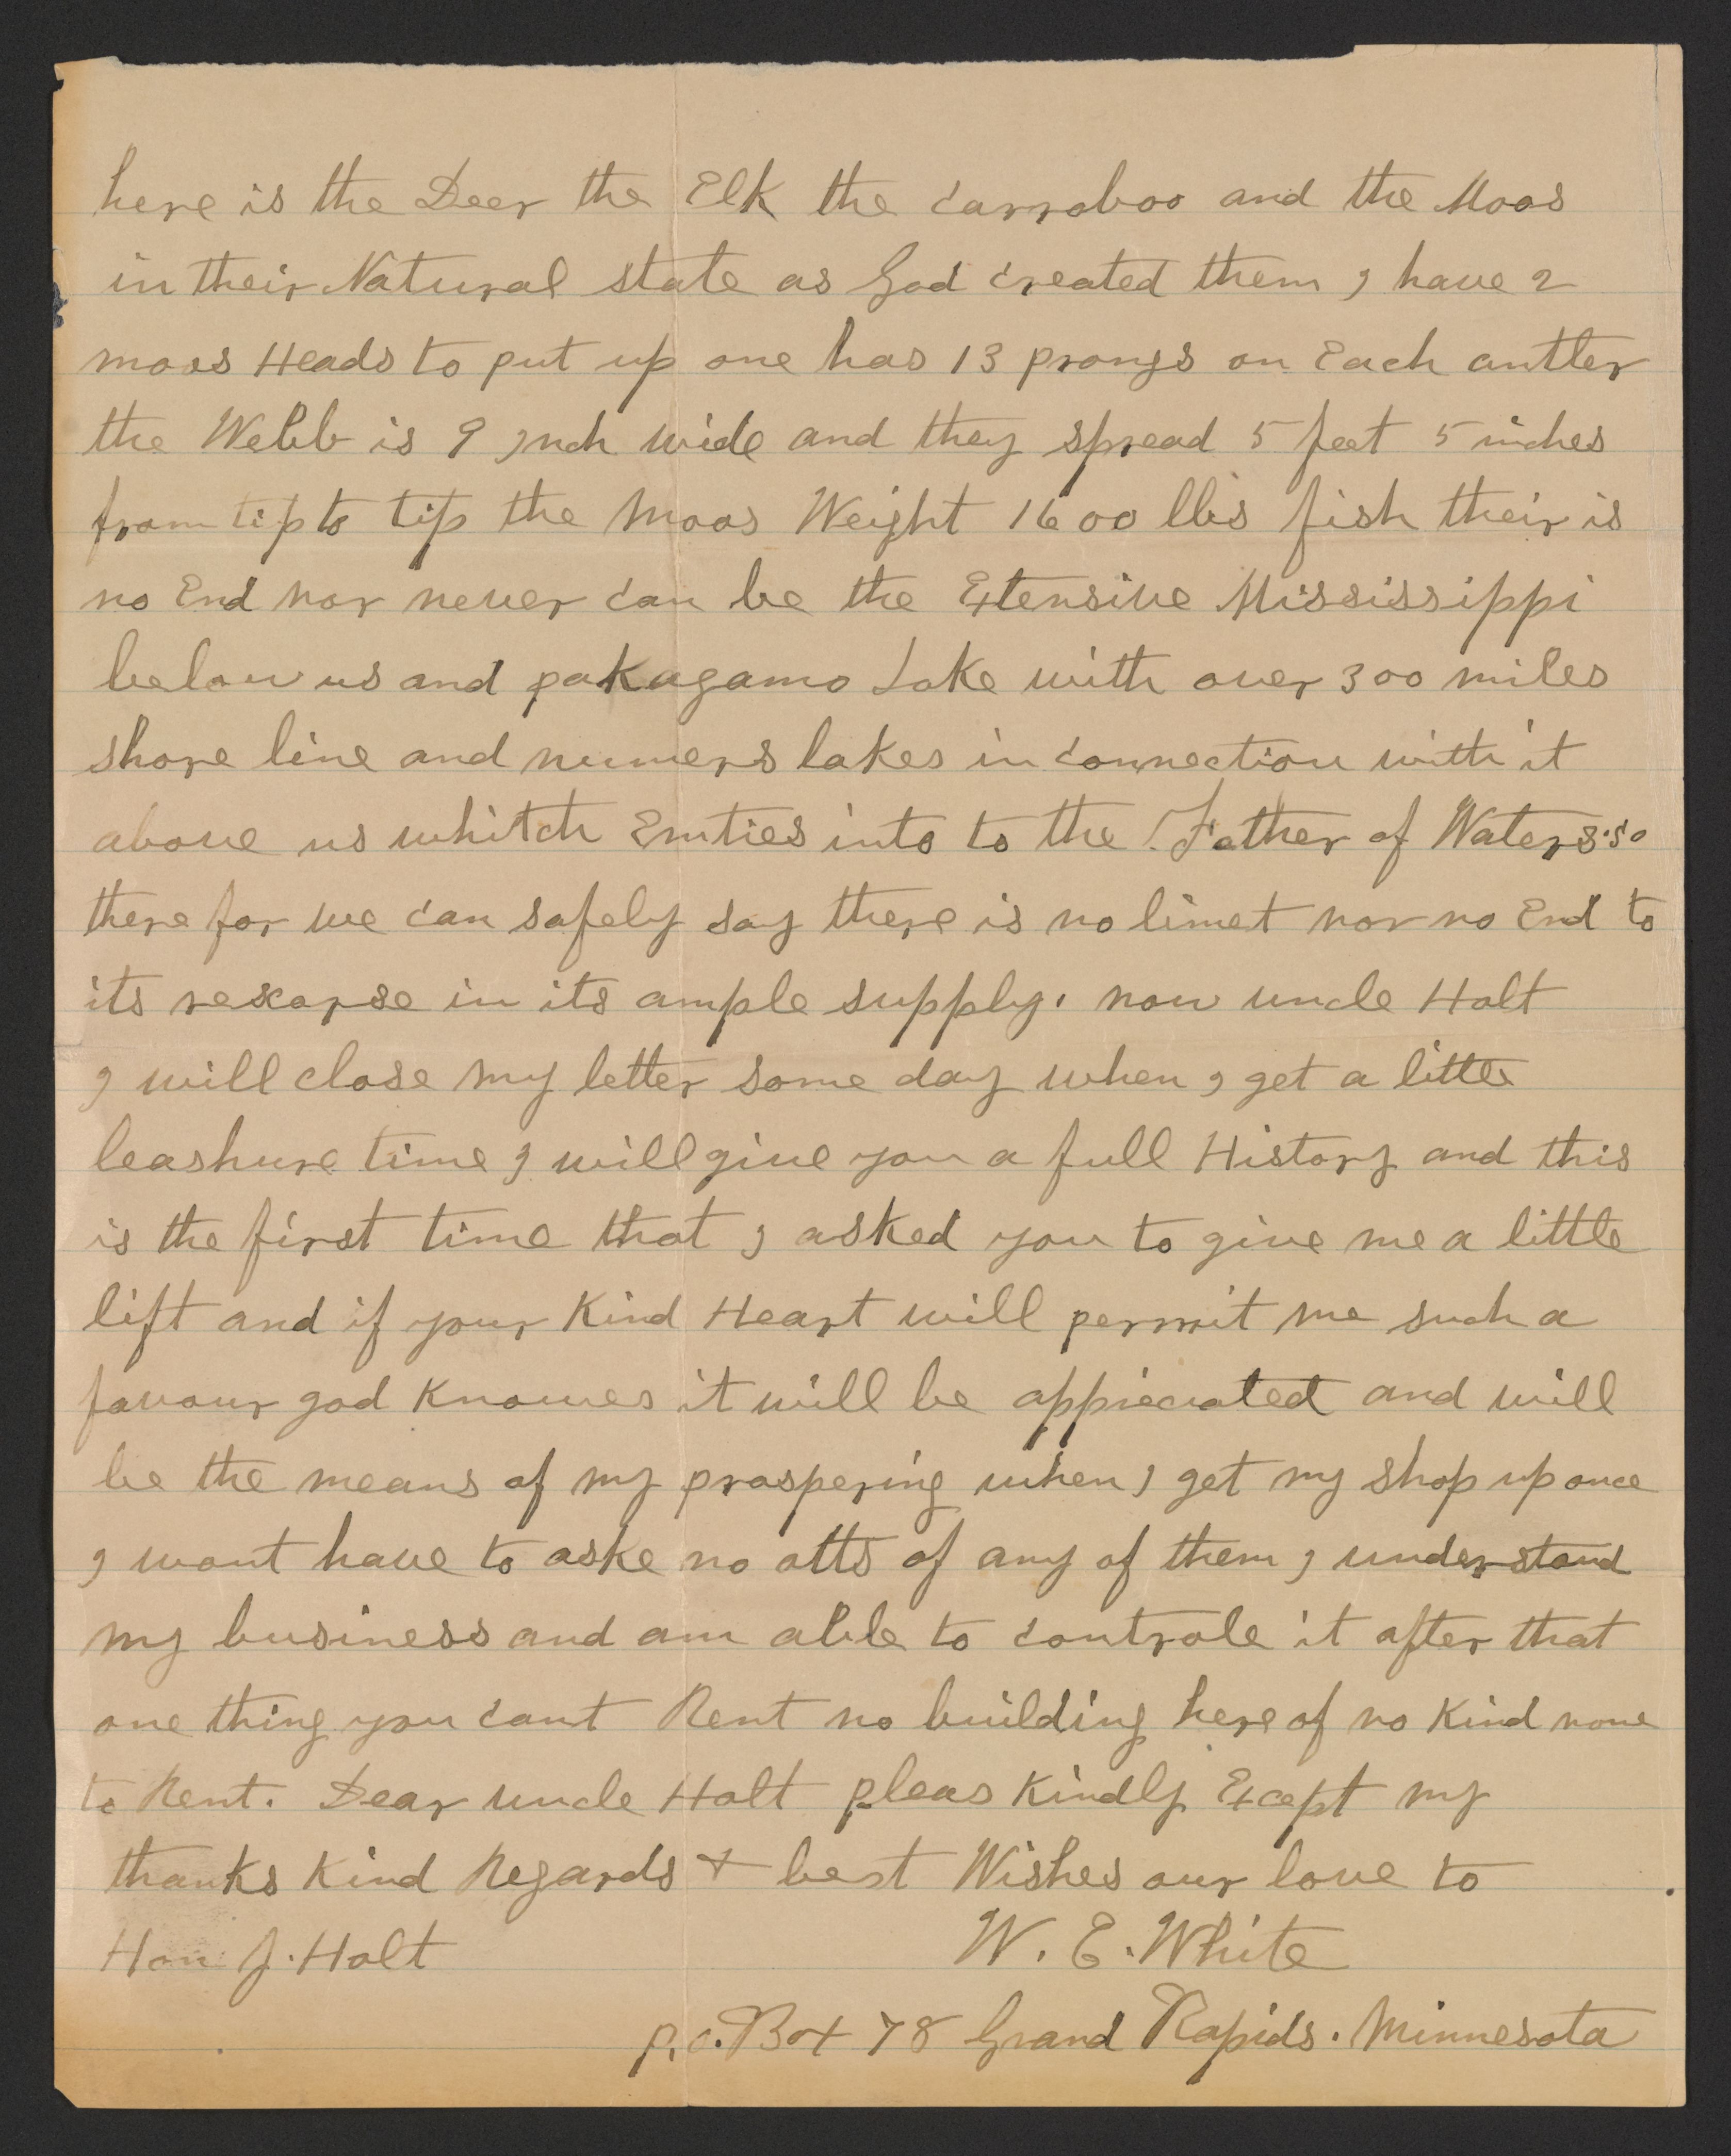 here is the Deer the Elk the Carraboo and the Moos
in their Natural state as God created them I have 2
moos Heads to put up one has 13 prongs on Each antler
the Webb is 9 Inch wide and they spread 5 feet 5 inches
from tip to tip the Moos Weight 1600 lbs fish their is
no End nor never can be the Extensive Mississippi
below us and pakagamo Lake with over 300 miles
shore line and numers lakes in connection with it
above us whitch Emties into to the Father of Waters. so
there for we can safely say there is no limet nor no End to
its rescorse in its ample supply. now uncle Holt
I will close my letter some day when I get a little
leashure time I will give you a full History and this
is the first time that I asked you to give me a little
lift and if your Kind Heart will permit me such a
favour god Knowes it will be appreciated and will
be the means of my prospering when I get my shop up once
I wont have to aske no otts of any of them I understand
my business and am able to controle it after that
one thing you cant Rent no building here of no Kind none
to Rent. Dear uncle Holt pleas Kindly Except my
thanks Kind Regards + best Wishes our love to
Hon J. Holt W. E. White
p.o. Box 78 Grand Rapids. Minnesota